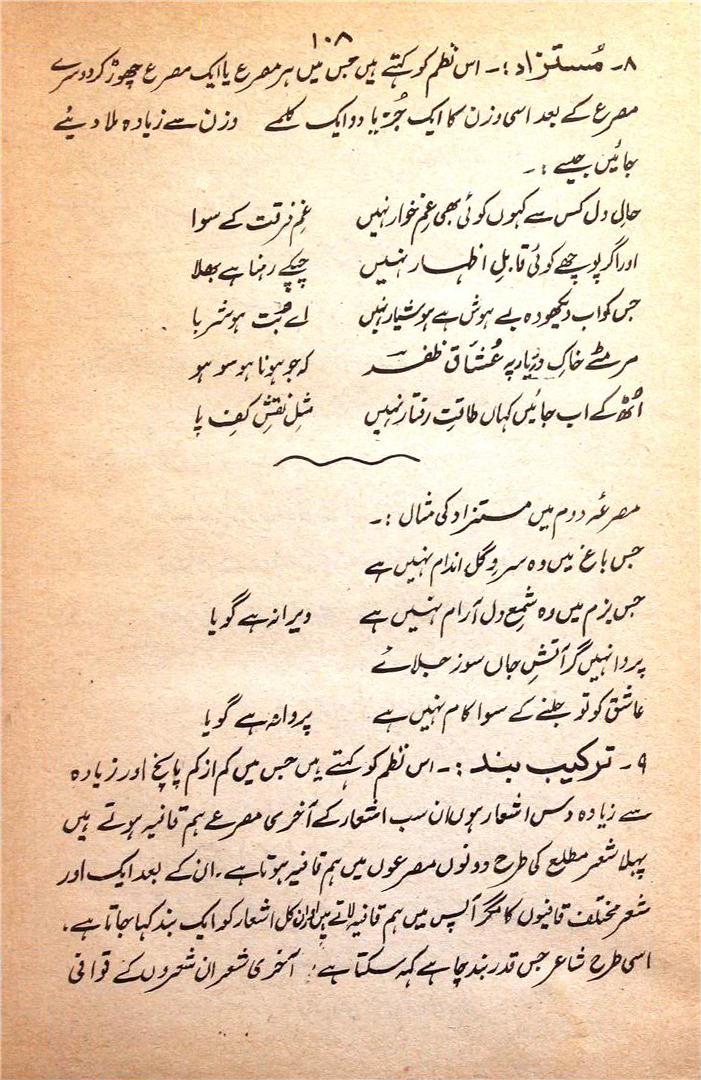 ۱۰۸
۸۔ مُستزاد :۔ اس نظم کو کہتے ہیں جس میں ہر مصرع یا ایک مصرع چھوڑ کر دوسرے
مصرع کے بعد اسی وزن کا ایک جُز یا دو ایک کلمے وزن سے زیادہ ملا دیئے
جائیں جیسے :۔
حالِ دل کس سے کہوں کوئی بھی غم خوار نہیں غمِ فرقت کے سوا
اور اگر پوچھے کوئی قابلِ اظہار نہیں چپکے رہنا ہے بھلا
جس کو اب دیکھو وہ بے ہوش ہے ہوشیار نہیں اے محبت ہوشربا
مر مٹے خاکِ درِ یار پہ عُشّاق ظفر کہ جو ہونا ہو سو ہو
اُٹھ کے اب جائیں کہاں طاقتِ رفتار نہیں مثلِ نقشِ کفِ پا
مصرعۂ دوم میں مستزاد کی مثال :۔
جس باغ میں وہ سروِ گل اندام نہیں ہے
جس بزم میں وہ شمعِ دل آرام نہیں ہے ویرانہ ہے گویا
پروا نہیں گر آتشِ جاں سوز جلائے
عاشق کو تو جلنے کے سوا کام نہیں ہے پروانہ ہے گویا
۹۔ ترکیب بند :۔ اس نظم کو کہتے ہیں جس میں کم از کم پانچ اور زیادہ
سے زیادہ دس اشعار ہوں ان سب اشعار کے آخری مصرعے ہم قافیہ ہوتے ہیں
پہلا شعر مطلع کی طرح دونوں مصرعوں میں ہم قافیہ ہوتا ہے ۔ ان کے بعد ایک اور
شعر مختلف قافیوں کا مگر آپس میں ہم قافیہ لاتے ہیں اور ان کل اشعار کو ایک بند کہا جاتا ہے ۔
اسی طرح شاعر جس قدر بند چاہے کہہ سکتا ہے ، آخری شعر ان شعروں کے قوافی